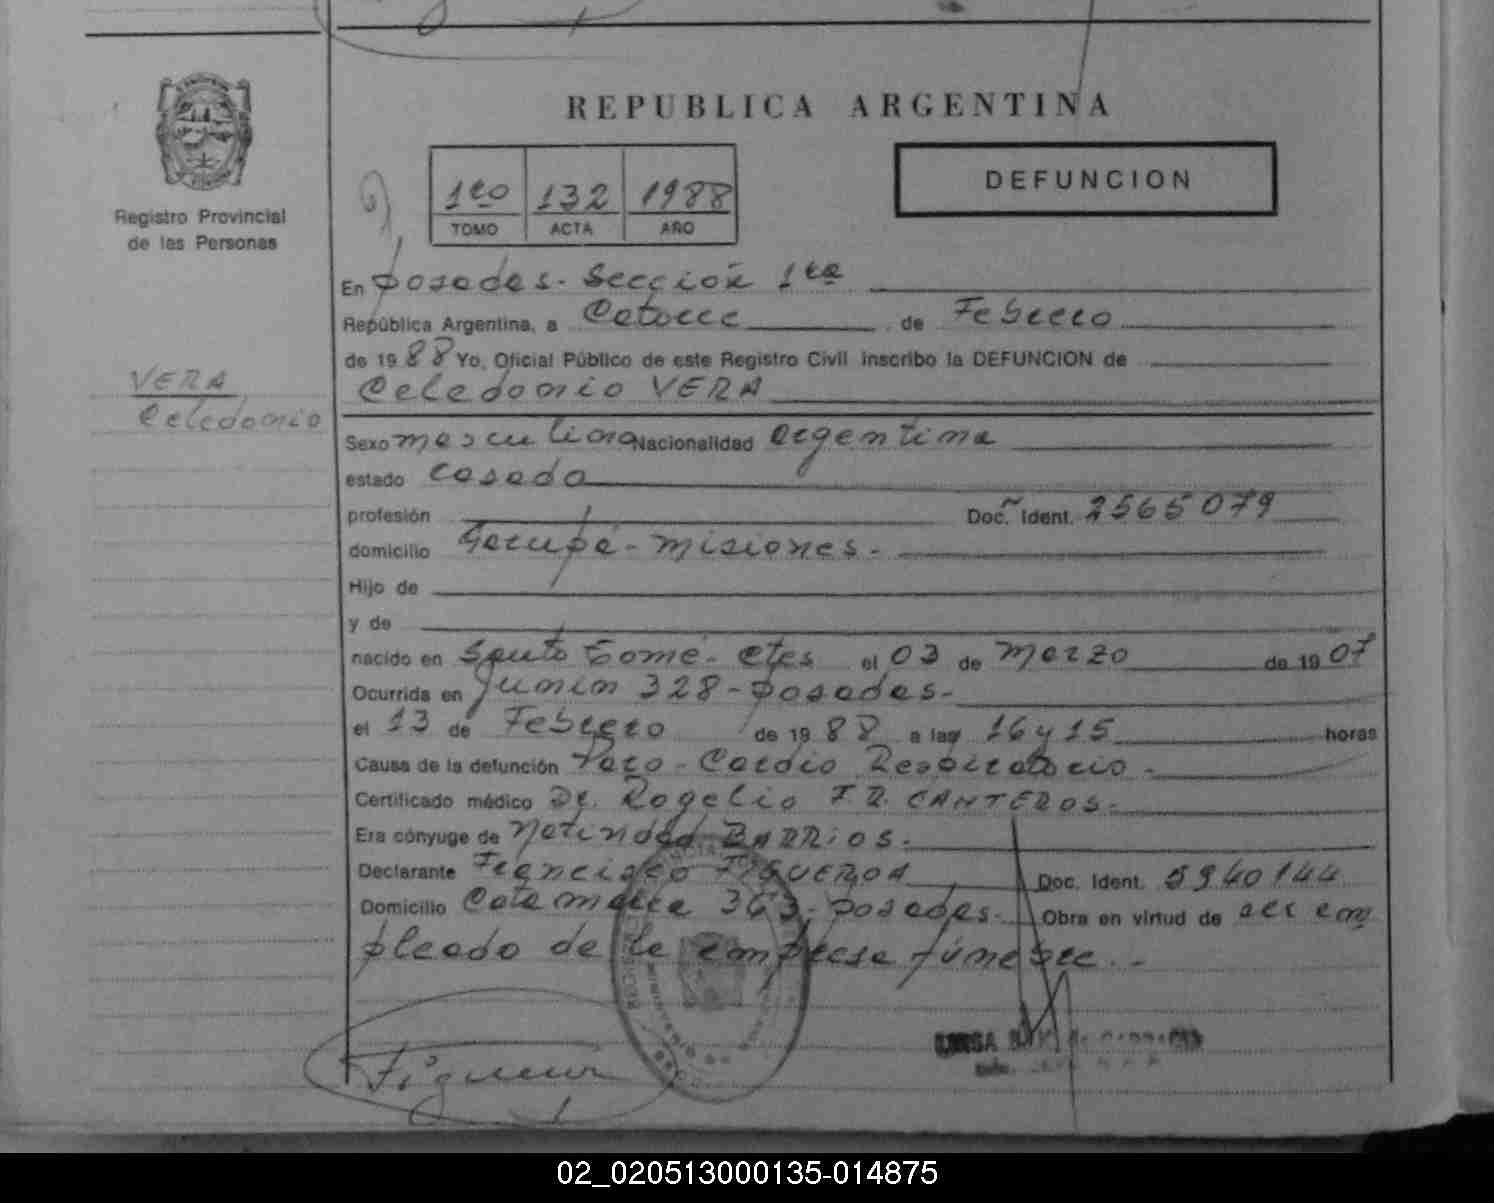 REPUBLICA ARGENTINA
Registro Provincial
de las Personas
1ro 132 1988
TOMO ACTA AÑO
DEFUNCION
En Posadas - Sección 1ra
República Argentina, a Catorce de Febrero
de 1988 Yo, Oficial Público de este Registro Civil inscribo la DEFUNCION de
Celedonio VERA
VERA
Celedonio
Sexo masculino Nacionalidad argentina
estado casado
profesión Doc. Ident. 2565079
domicilio Garupá - Misiones -
Hijo de
y de
nacido en Santo Tomé - Ctes el 03 de Marzo de 1907
Ocurrida en Junín 328 - Posadas -
el 13 de Febrero de 1988 a las 16 y 15 horas
Causa de la defunción Paro - Cardio Respiratorio -
Certificado médico Dr. Rogelio F.R. CANTEROS -
Era cónyuge de BARRIOS -
Declarante Francisco FIGUEROA Doc. Ident. 5940144
Domicilio Catamarca 363 - Posadas - Obra en virtud de ser em
pleado de la empresa fúnebre . -
02_020513000135-014875